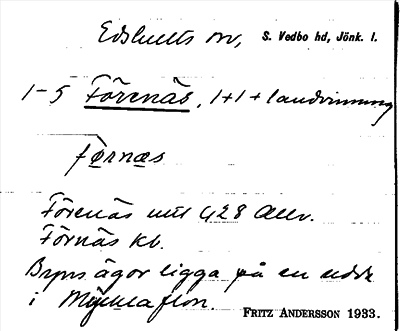 Edshults sn, S. Vedbo hd, Jönk. l.
1-5 Förenäs, 1+1+landvinning
førnæs
Förenäs mtl 428 Allv.
Förnäs kb.
Byns ägor ligga på en udde
i Mycklaflon.
FRITZ ANDERSSON 1933.